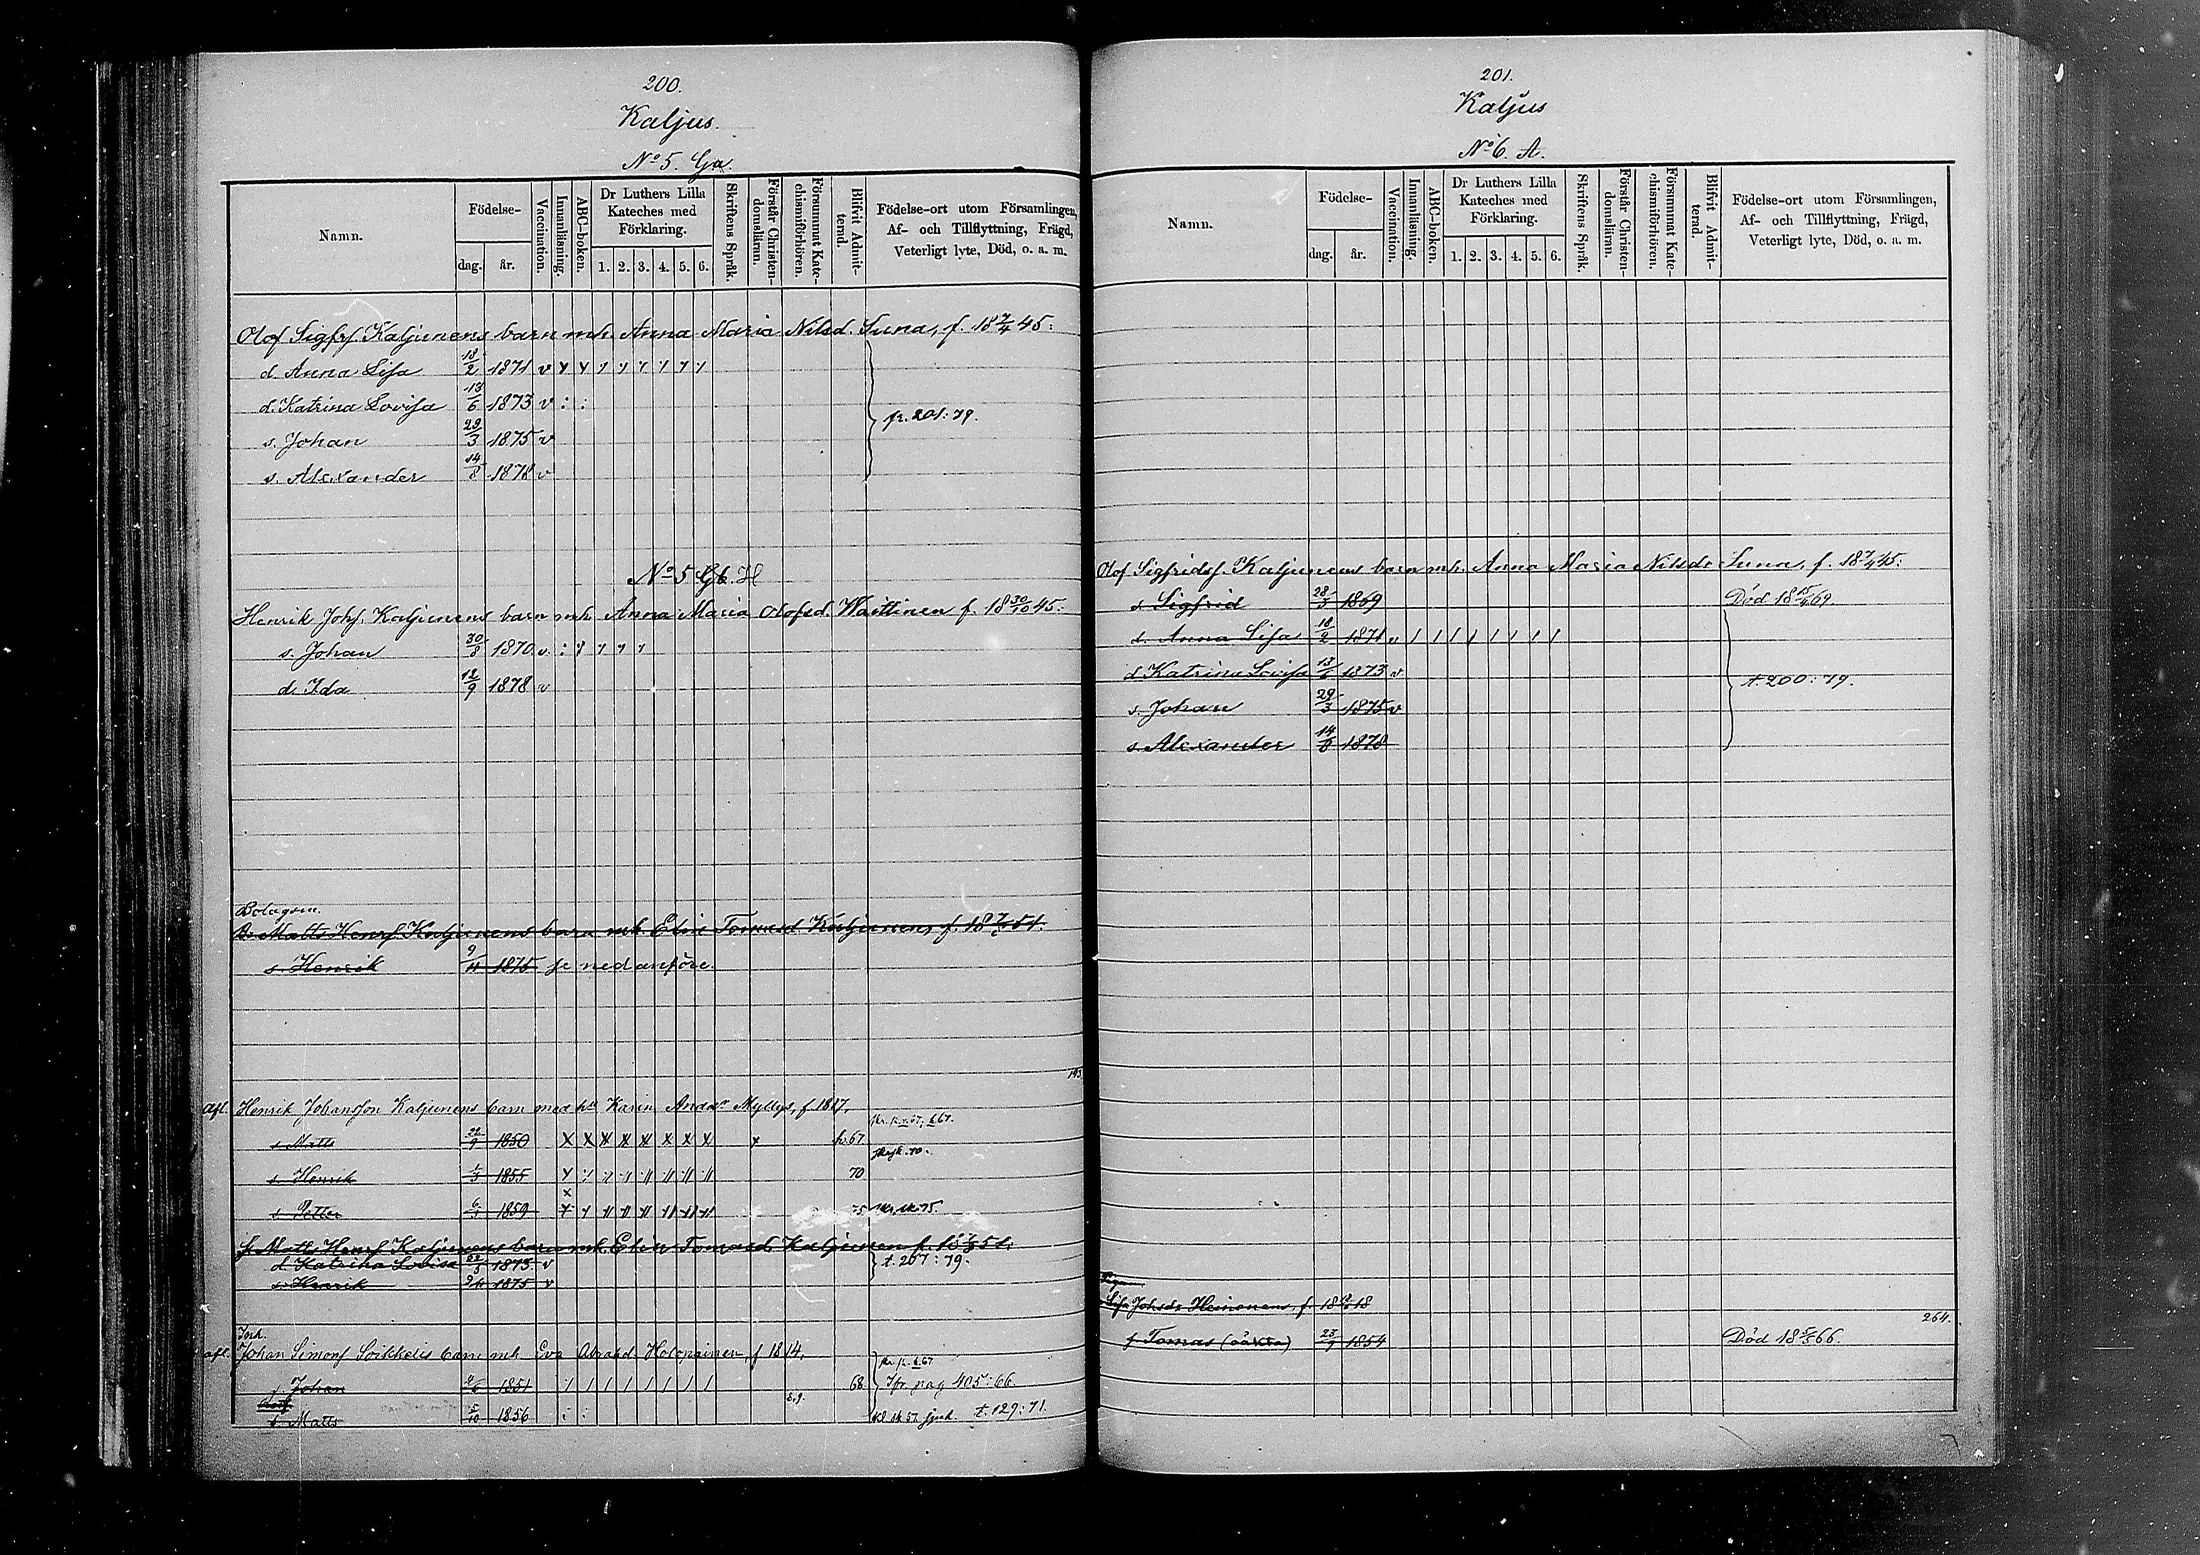 200.
Kaljus.
No 5. Ga.
Namn.
Födelse-
dag. år.
Vaccination.
Innanläsning.
ABC-boken.
Dr Luthers Lilla
Kateches med
Förklaring.
1. 2. 3. 4. 5. 6.
Skriftens Språk.
Förstår Christen-
domsläran.
Försummat Kate-
chismiförhören.
Blifvit Admit-
terad.
Födelse-ort utom Församlingen,
Af- och Tillflyttning, Frägd,
Veterligt lyte, Död, o. a. m.
Olof Sigfrs. Kaljunens barn mh. Anna Maria Nilsd. Suna, f. 18 7/4 45:
d. Anna Lisa 18/2 1871 v
d. Katrina Lovisa 13/6 1873 v : :
s. Johan 29/3 1875 v
fr. 201:79.
s. Alexander 14/8 1878 v
No 5 Gb. H
Henrik Johs. Kaljunens barn mh. Anna Maria Olofsd. Waittinen f. 18 30/10 45:
s. Johan 30/8 1870 v
d. Ida 12/9 1878 v
Bolagsm.
Matts Henrs Kaljunens barn mh. Elin Tomasd Kaljunen, f. 18 51.
s. Henrik 9/11 1875 se nedanföre.
afl. Henrik Johansson Kaljunens barn med hu Karin Andsdr Myllys, f. 1827,
s. Matts 22/9 1850 x x x x x x x x x h. 67
s. Henrik 1855 70
s. Petter 6/3 1859 75
Matts Henrs Kaljunens barn mh. Elin Tomasd. Kaljunen f. 18 51.
d. Katrina Lovisa 1873 v
t. 207:79.
s. Henrik 9/11 1875 v
Inh.
afl. Johan Simons Soikkelis barn mh. Eva Abrahd. Holopainen, f 1814,
s. Johan 1851 68
pag 405:66.
s. Matts 5/10 1856 : :
t. 129:71.
201.
Kaljus
No 6. A.
Namn.
Födelse-
dag. år.
Vaccination.
Innanläsning.
ABC-boken.
Dr Luthers Lilla
Kateches med
Förklaring.
1. 2. 3. 4. 5. 6.
Skriftens Språk.
Förstår Christen-
domsläran.
Försummat Kate-
chismiförhören.
Blifvit Admit-
terad.
Födelse-ort utom Församlingen,
Af- och Tillflyttning, Frägd,
Veterligt lyte, Död, o. a. m.
Olof Sigfrids. Kaljunens barn mh. Anna Maria Nilsdr Suna, f. 18 7/4 45:
s. Sigfrid 28/3 1869 Död 18 15/4 69.
d. Anna Lisa 18/2 1871 v / / / / / / / /
d. Katrina Lovisa 13/6 1873 v
s. Johan 29/3 1875 v
t. 200:79.
s. Alexander 14/8 1878
Lisa Johsdr Heinonens, f. 18 18
264.
s. Tomas (oäkta) 23/9 1854 Död 18 5/5 66.